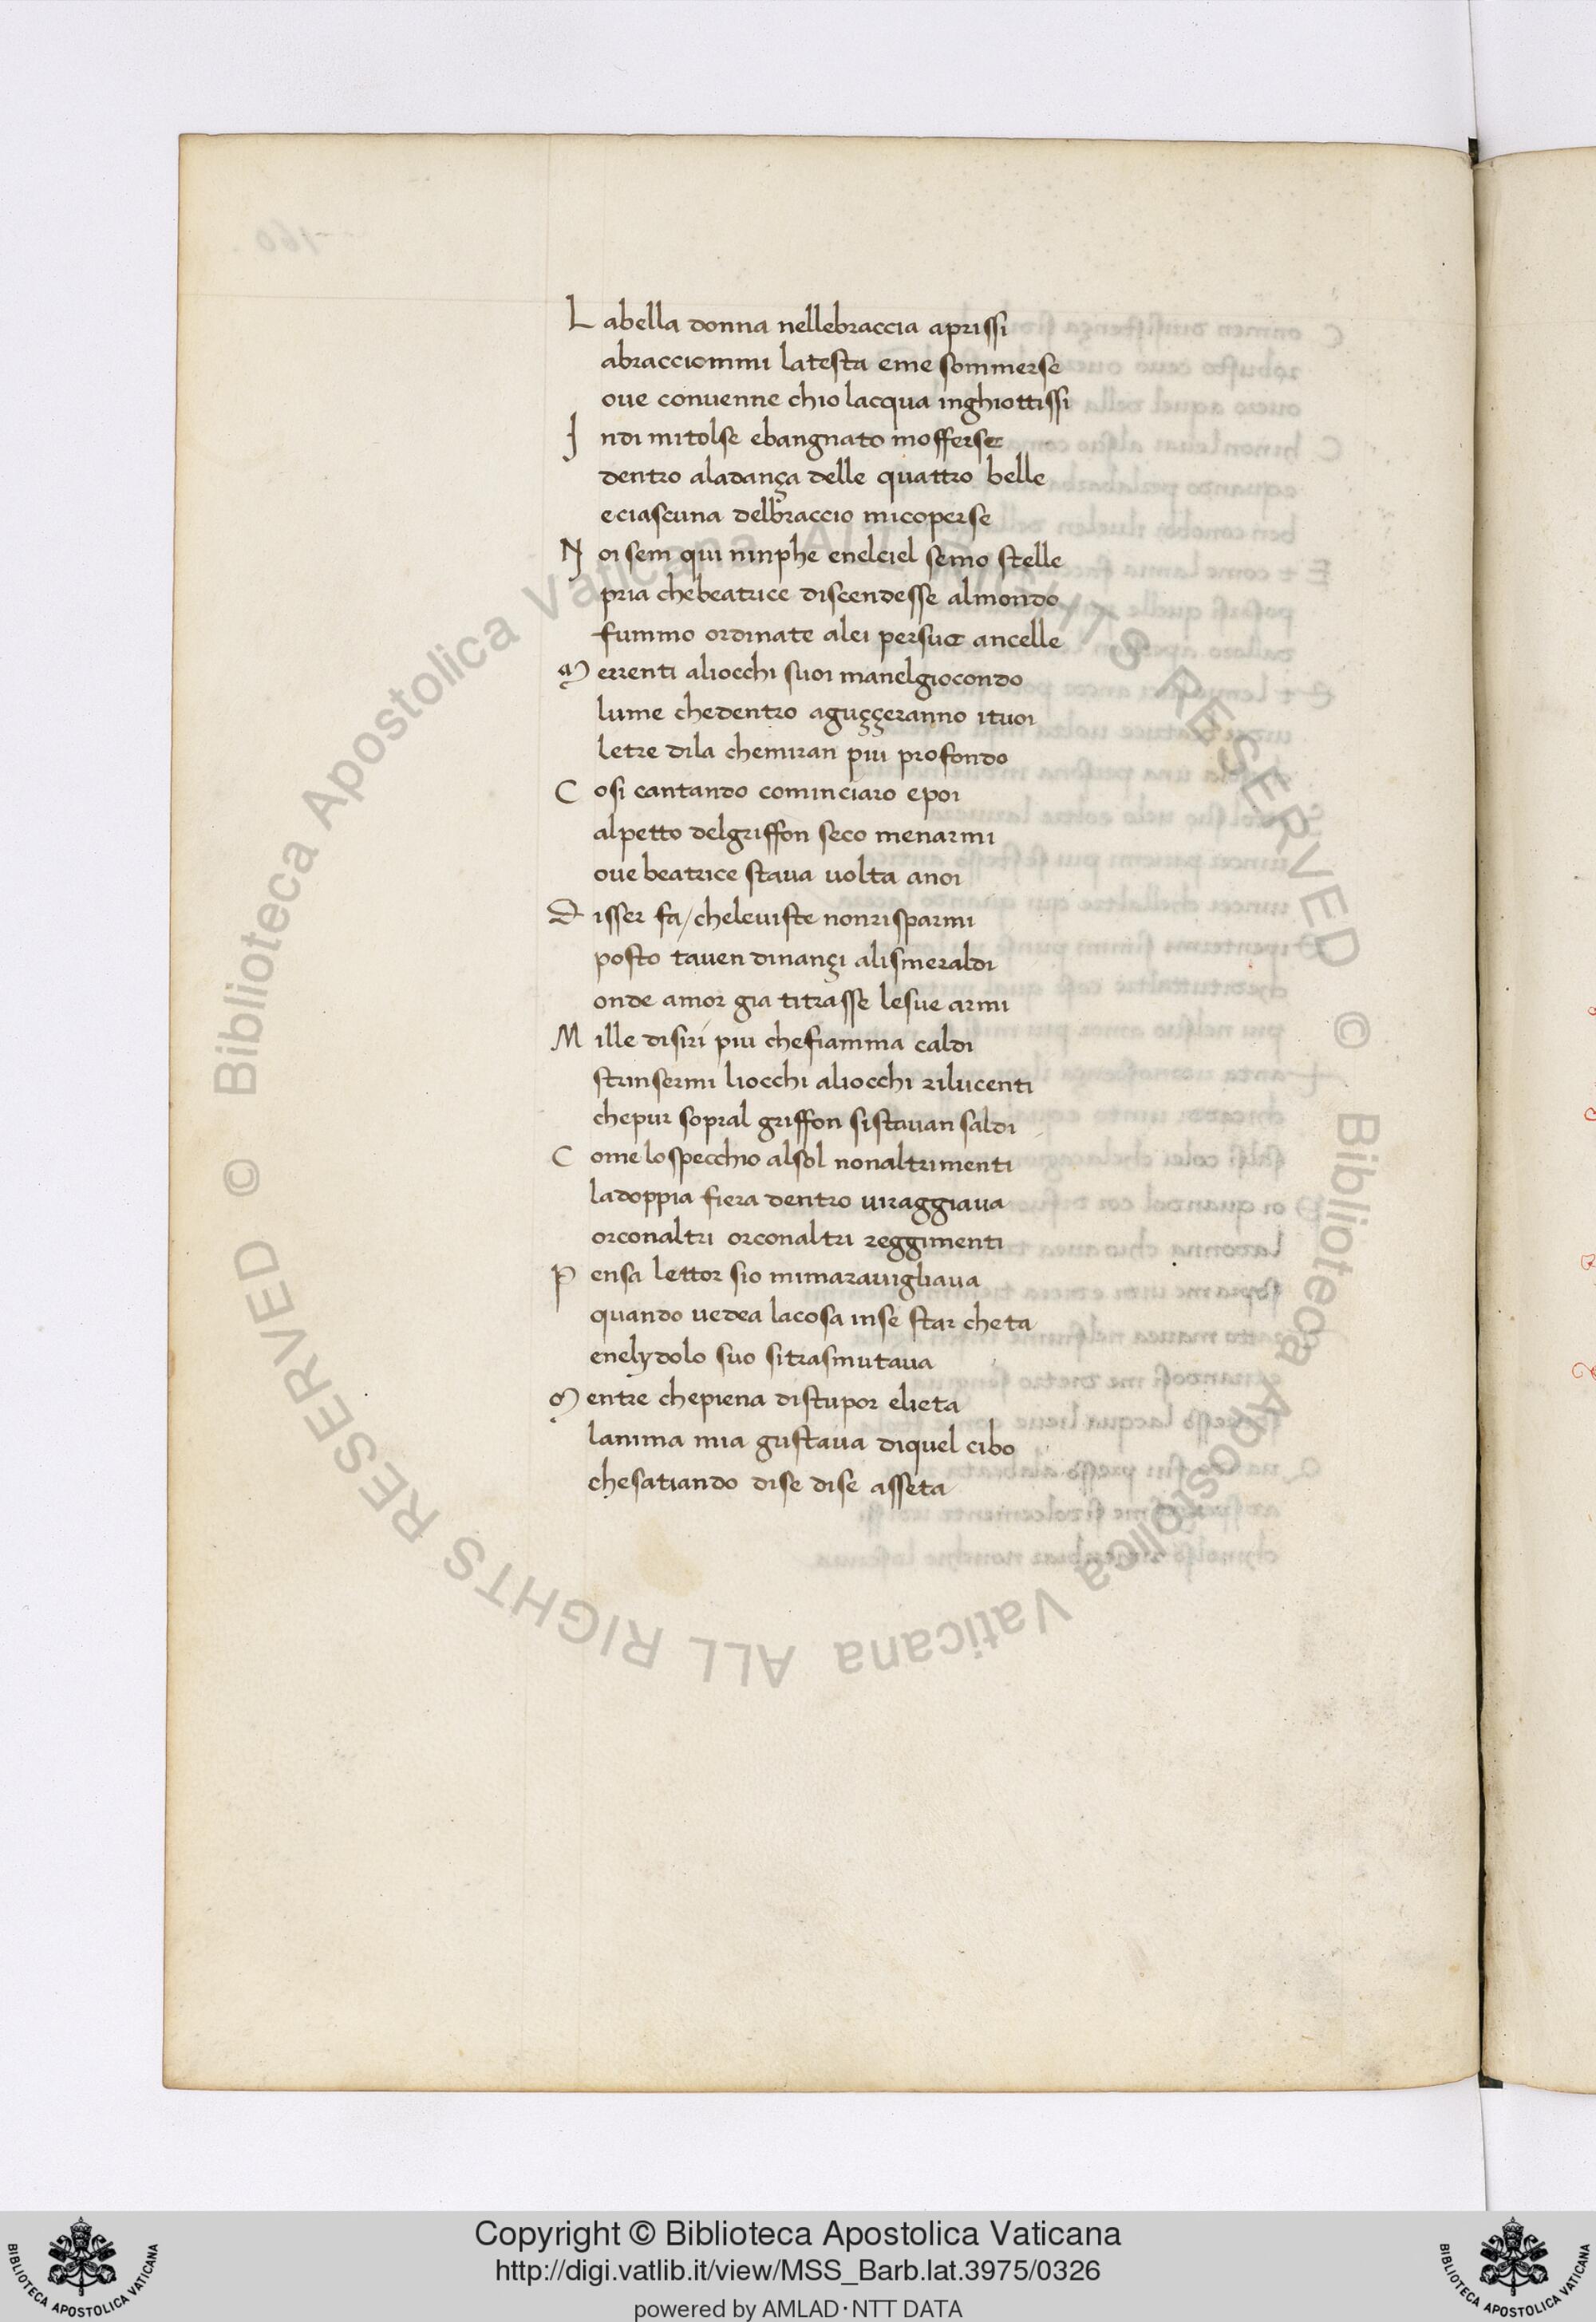 L abella donna nellebraccia aprissi
abracciommi latesta eme sommerse
oue conuenne chio lacqua inghiottissi
J ndi mitolse ebangnato mofferse
dentro aladança delle quattro belle
eciascuna delbraccio micoperse
N oi sem qui ninphe enelciel semo stelle
pria chebeatrice discendesse almondo
fummo ordinate alei persue ancelle
M errenti aliocchi suoi manelgiocondo
lume chedentro aguççeranno ituoi
letre dila chemiran piu profondo
C osi cantando cominciaro epoi
alpetto delgriffon seco menarmi
oue beatrice staua uolta anoi
D isser fa/cheleuiste nonrisparmi
posto tauen dinançi alismeraldi
onde amor gia titrasse lesue armi
M ille disiri piu chefiamma caldi
strinsermi liocchi aliocchi rilucenti
chepur sopral griffon sistauan saldi
C ome lospecchio alsol nonaltrimenti
ladoppia fiera dentro uiraggiaua
orconaltri orconaltri reggimenti
P ensa lettor sio mimarauigliaua
quando uedea lacosa inse star cheta
enelydolo suo sitrasmutaua
M entre chepiena distupor elieta
lanima mia gustaua diquel cibo
chesatiando dise dise asseta
Copyright © Biblioteca Apostolica Vaticana
http://digi.vatlib.it/view/MSS_Barb.lat.3975/0326
powered by AMLAD·NTT DATA
BIBLIOTECA APOSTOLICA VATICANA
BIBLIOTECA APOSTOLICA VATICANA
© Biblioteca Apostolica Vaticana ALL RIGHTS RESERVED © Biblioteca Apostolica Vaticana ALL RIGHTS RESERVED